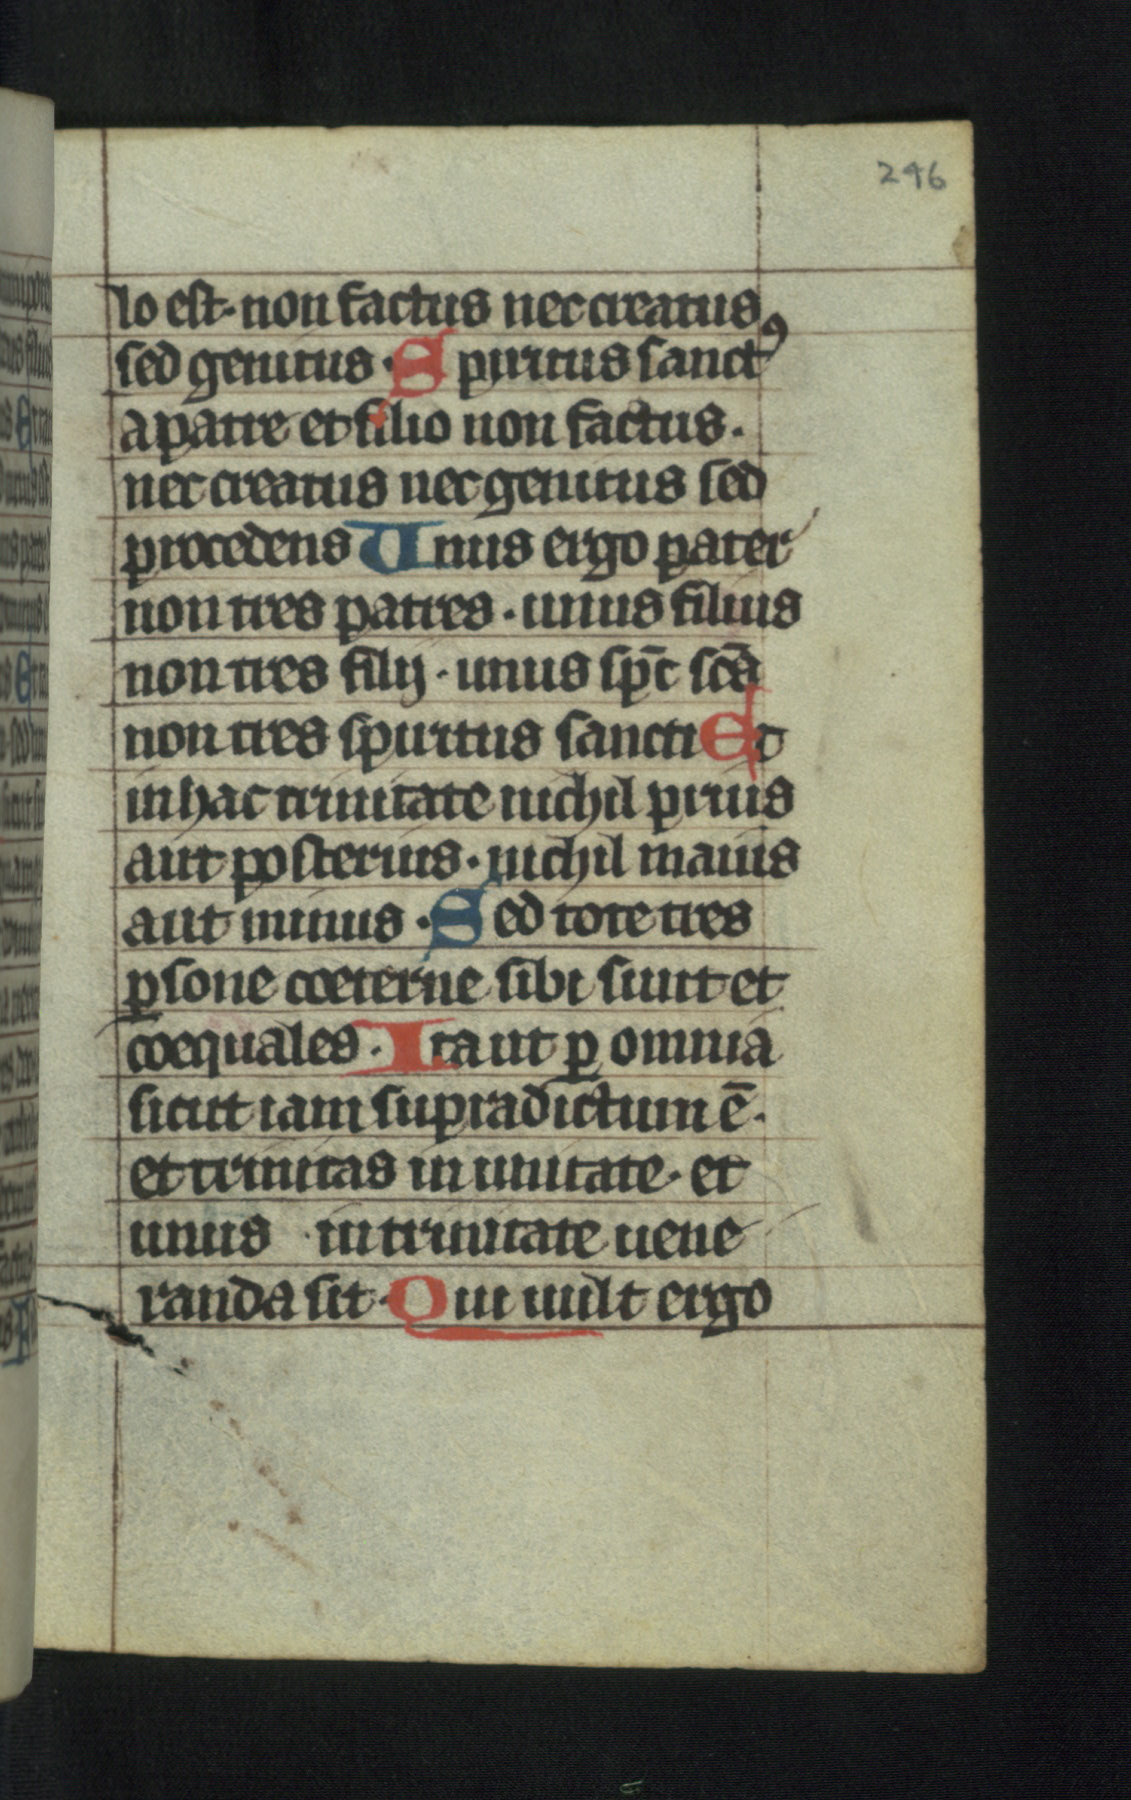 246
lo est · non factus nec creatus
sed genitus · Spiritus sanctꝰ
a patre et filio non factus .
nec creatus nec genitus sed
procedens Unus ergo pater
non tres patres · unus filius
non tres filij · unus sp̄c sc̄s
non tres spiritus sancti Et
in hac trinitate nichil prius
aut posterius · nichil maius
aut minus · Sed tote tres
ꝑsone coeterne sibi sunt et
coequales · Ita ut ꝑ omnia
sicut iam supradictum ē .
et trinitas in unitate · et
unus in trinitate uene
randa sit · Qui uult ergo